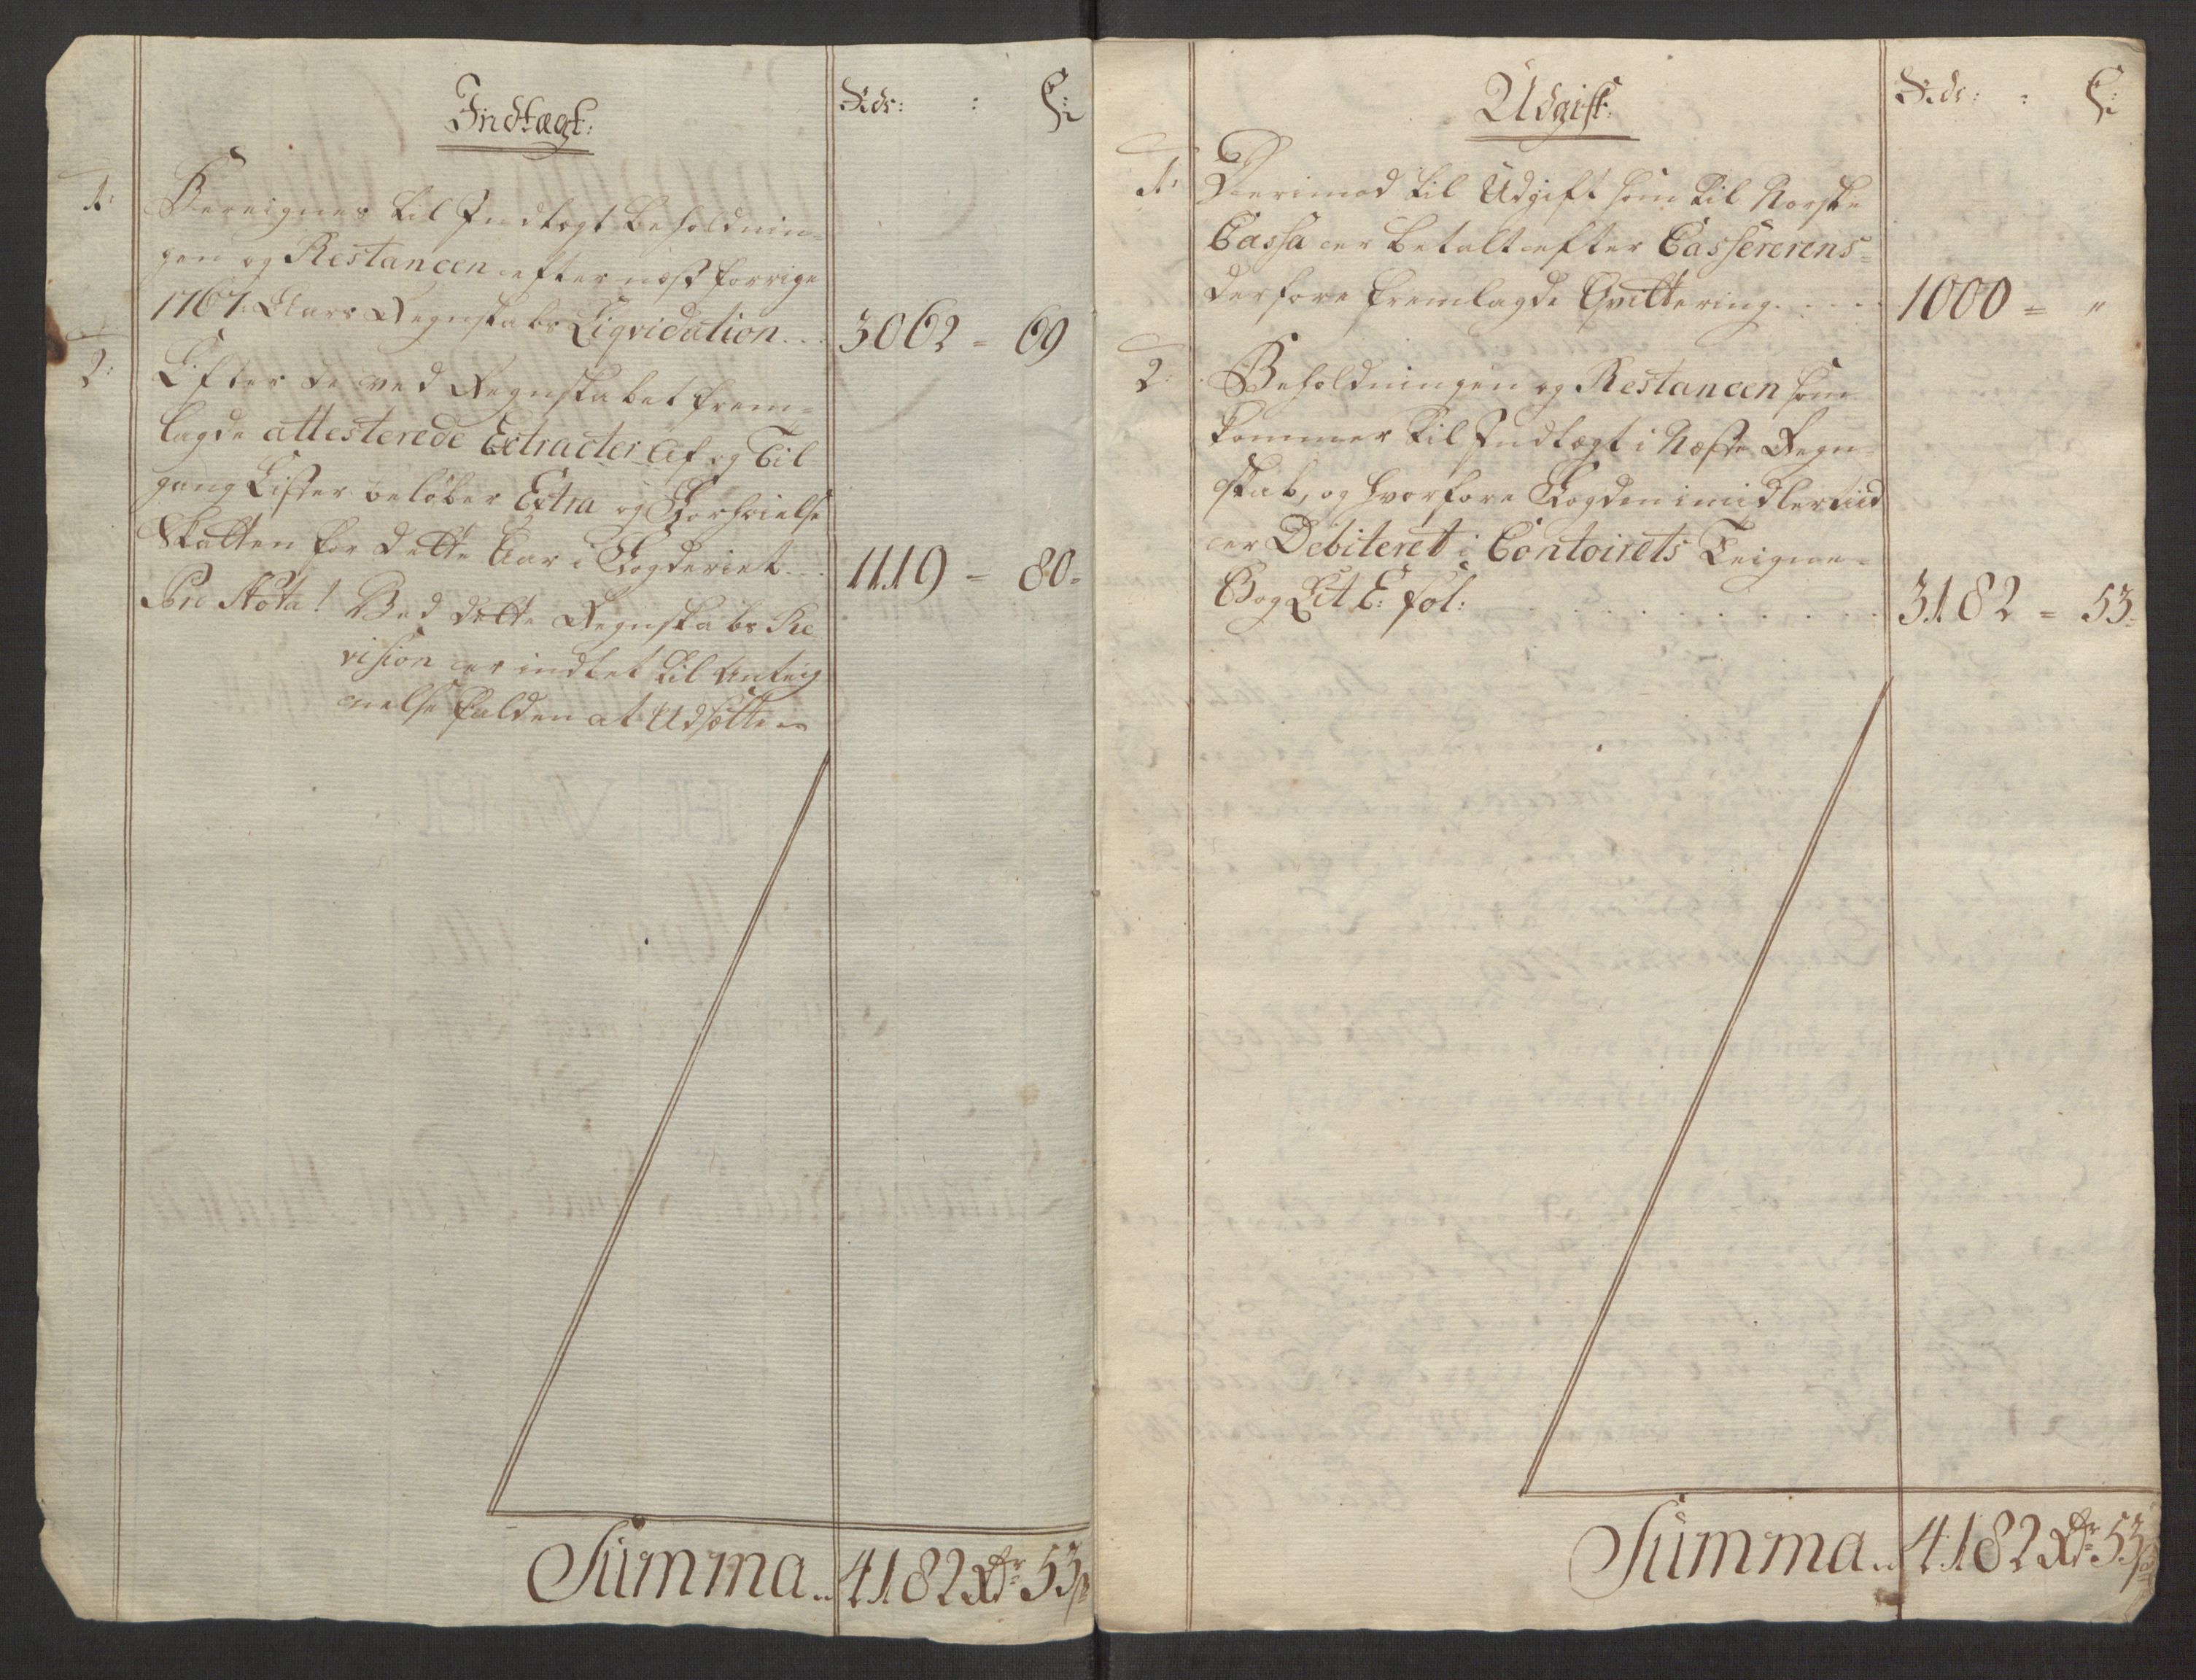 Indtægt:
Rdr: : ß:
1: Bereignes til Indtægt beholdnin=
gen og Restancen efter næst forrige
1767. Aars Regnskabs Liqvidation... 3062 = 69
2: Efter de ved Regnskabet frem=
lagde attesterede Extracter Af og Til
gang Lister beløber Extra og Forhøielse
Skatten for dette Aar i Fogderiet... 1119 = 80=
Pro Nota! Ved dette Regnskabs Re
vision er indtet til Anteig
nelse falden at Udsætte
Summa.. 4182 Rdr 53 ß
Udgift:
Rdr: : ß:
1: Derimod til Udgift som til Norske
Cassa er betalt efter Cassererens
derfore fremlagde Qvittering..... 1000 = "
2: Beholdningen og Restancen som
kommer til Indtægt i Næste Regn=
skab, og hvorfore Fogden imidlertiid
er Debiteret i Contoirets Teigne=
Bog Lit E: fol: ........ 3182 = 53=
Summa.. 4182 Rdr 53 ß